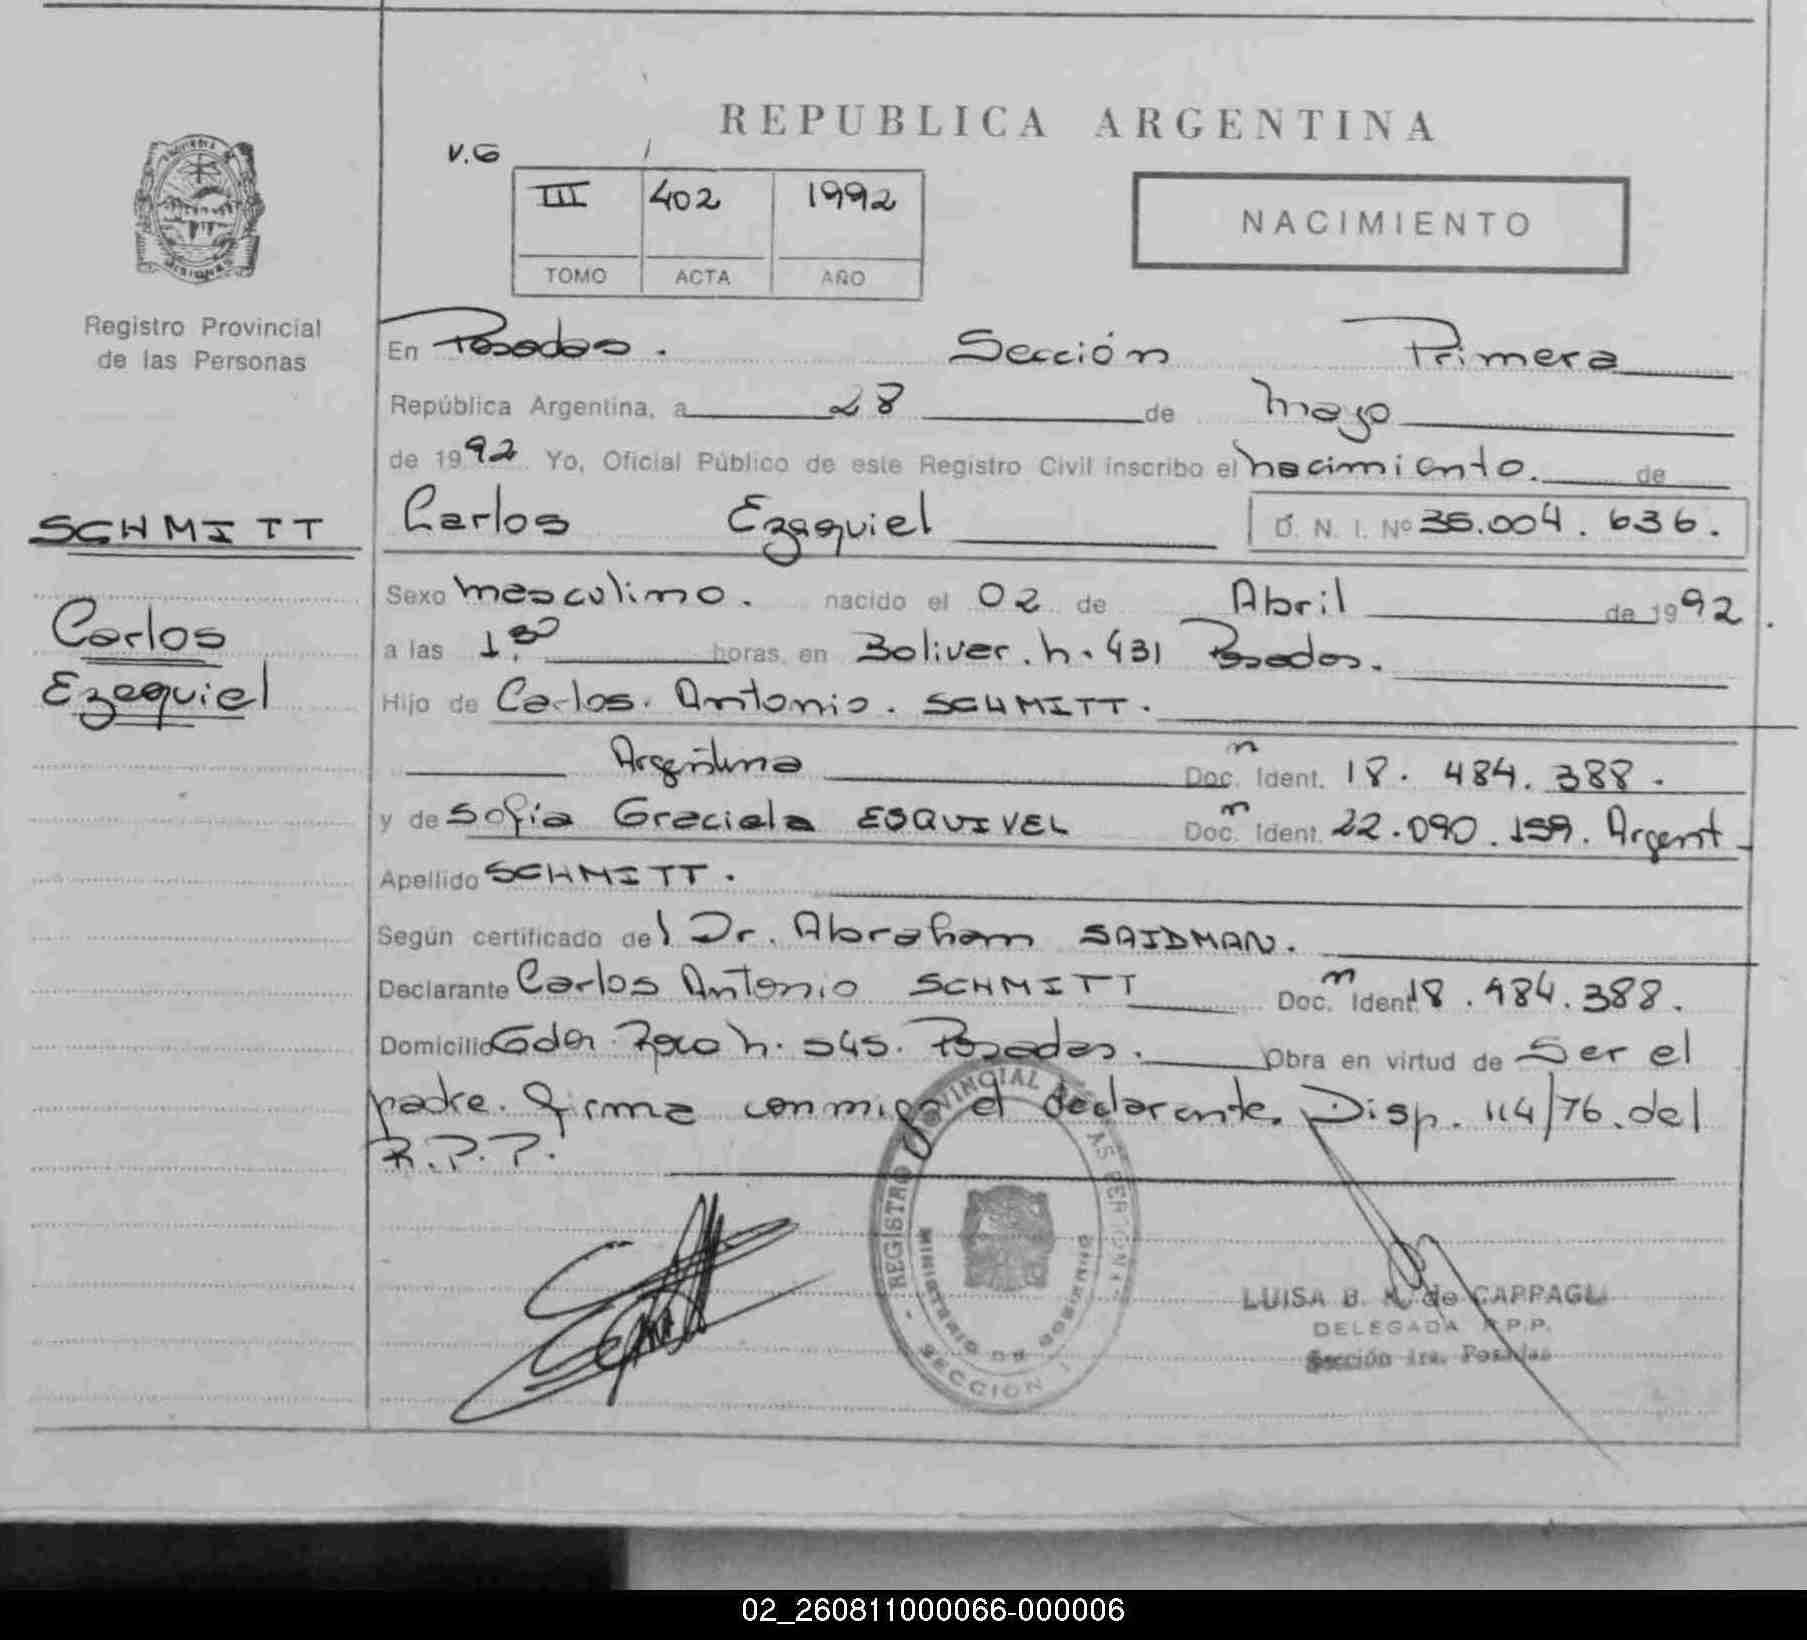 REPUBLICA ARGENTINA
V.G
III 402 1992
TOMO ACTA AÑO
NACIMIENTO
MISIONES
Registro Provincial
de las Personas
SCHMITT
Carlos
Ezequiel
En Posadas. Sección Primera
República Argentina, a 28 de mayo
de 1992 Yo, Oficial Público de este Registro Civil inscribo el nacimiento. de
Carlos Ezequiel D. N. I. Nº 36.004.636.
Sexo masculino. nacido el 02 de Abril de 1992.
a las 1.30 horas, en Bolivar. n. 431 Posadas.
Hijo de Carlos. Antonio. SCHMITT.
Argentina Doc. Ident. 18.484.388.
y de Sofia Graciela ESQUIVEL Doc. Ident. 22.090.159. Argent
Apellido SCHMITT.
Según certificado del Dr. Abraham SAIDMAN.
Declarante Carlos Antonio SCHMITT Doc. Ident 18.484.388.
Domicilio Gdor. Roco n. 545. Posadas. Obra en virtud de Ser el
padre. firma conmigo el declarante. Disp. 114/76. del
R.P.P.
REGISTRO PROVINCIAL DE LAS PERSONAS
MINISTERIO DE GOBIERNO
SECCION 1
LUISA B. de CAPPAGLI
DELEGADA R.P.P.
Sección 1ra. Posadas
02_260811000066-000006